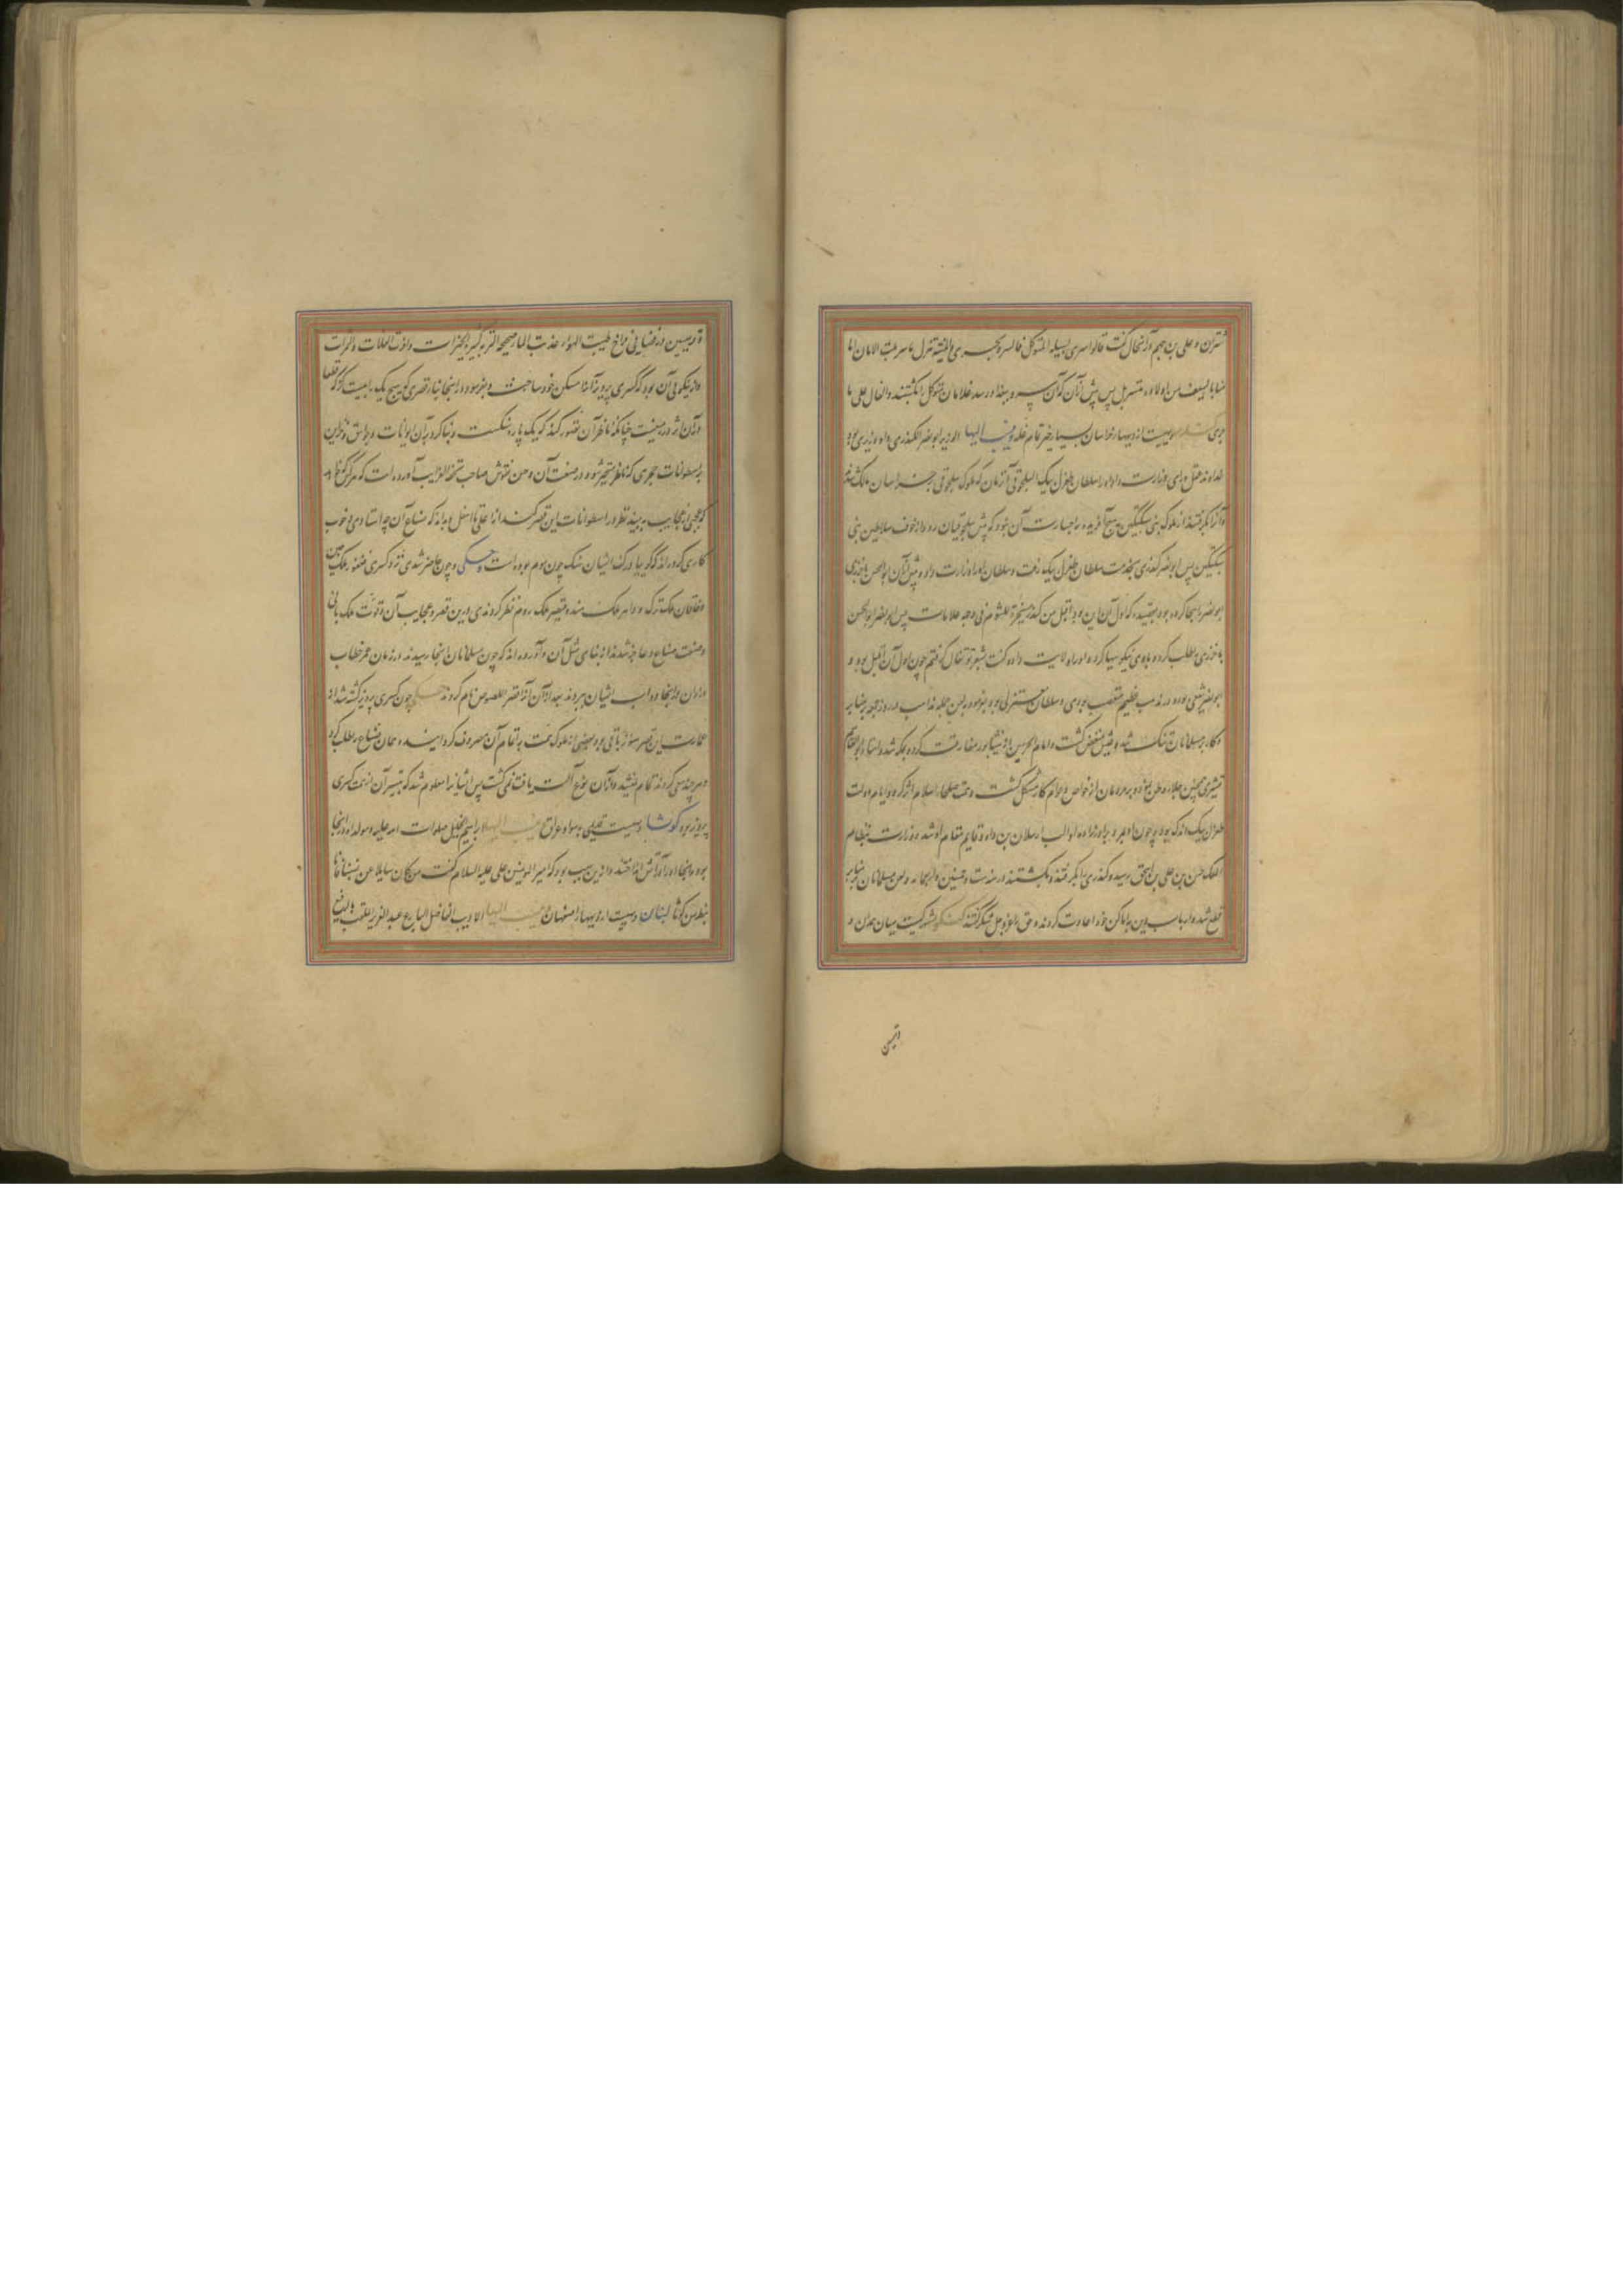 شتران و علی بن جهم در آنحال گفت قالوا سری لسبیله المتوکل فالسر و یجری والمنیة تنزل ما سربت الا مان اما
منا بالسیف من اولاده متسربل پس پیش از آن که آن سر و بغداد رسد غلامان متوکل را بکشتند والفال علی ما
جری دیهیست از دیهها خراسان بسیار خیر تمام غله وینسب الیها الوزیر ابو نصر الکندری و او وزیری بود
خداوند عقل و رای وزارت داد او را سلطان طغرل بیک السلجوقی آنزمان که ملوک سلجوقی خراسان مالک شدند
و آنرا بگرفتند از ملوک بنی سبکتگین و هیچ آفریده را جسارت آن نبود که پیش سلجوقیان رود از خوف سلاطین بنی
سبکتگین پس ابو نصر کندری بخدمت سلطان طغرل بیک رفت و سلطان او را وزارت داد و پیش از آن ابوالحسن باخرزی
ابو نصر را هجا کرده بود بقصیده که اول آن این بود اقبل من کندر مسخرة للشوم فی وجهه علامات پس ابو نصر ابوالحسن
باخرزی را طلب کرد و با وی نیکوییها کرد و او را ولایت داد و گفت بشعر تو تفال گرفتم چون اول آن اقبل بود و
ابو نصر شیعی بوده در مذهب عظیم متعصب بودی و سلطان معتزلی بود و بفرمود بلعن جمله مذاهب در روز جمعه بر منابر
و کار بر مسلمانان تنگ شد و عیش منغص گشت و امام الحرمین از نیشابور مفارقت کرد و بمکه شد و استاد ابوالقاسم
قشیری همچنین جلاء وطن نمود و بر مردمان از خواص و عوام کار مشکل گشت و همت صلحاء اسلام اثر کرد و ایام دولت
طغرل بیک اندک بود و چون او بمرد برادرزاده او الب ارسلان بن داود قایم مقام او شد و وزارت بنظام
الملک حسن بن علی بن اسحق رسید و کندری را بگرفتند و بکشتند در سنه ست و خمسین و اربعمایه و لعن مسلمانان بر منابر
قطع شد و ارباب دین با ماکن خود اعادت کردند و حق را عز و جل شکر گفتند کنکور شهرکیست میان همدان و
قرمیسین
قرمیسین در فضایی فراخ طیبت الهواء عذبت الماء صحیحة التربة کثیرة الخیرات وافرت الغلات والثمرات
و از نیکویی آن بود که کسری پرویز آنرا مسکن خود ساخت و بفرمود در اینجا بناء قصری که هیچ یک را نیست
و آن اثر در نیست چنانکه ناظر آن تصور کند که یک پاره سنگست و بنا کرد در آن ایوانات و جواسق و خزاین
بر اسطوانات حجری که ناظر متحیر شود در صنعت آن و حسن نقوش صاحب تحفة الغرایب آورده است که هر کس خواهد
که عجبی از عجایب به بیند نظر در اسطوانات این قصر کند از اعلی تا اسفل و بداند که صناع آن چه استادی و خوب
کاری کرده اند که گوییا در کف ایشان سنگ چون موم بوده است و حکی و چون حاضر شدی نزد کسری فغفور ملک چین
و خاقان ملک ترک و داهر ملک هند و قیصر ملک روم نظر کردندی درین قصر و عجایب آن و قوت ملک بانی
و صنعت صناع و عاجز شدند از بنای مثل آن و آورده اند که چون مسلمانان اینجا رسیدند در زمان عمر خطاب
دزدان از اینجا دواب ایشان ببردند بعد از آن آنرا قصر اللصوص نام کردند چون کسری پرویز کشته شد از
عمارت این قصر هنوز باقی بود و بعضی از ملوک همت به اتمام آن مصروف گردانیدند و همان صناع را طلب کرد
و هر چند سعی کردند تمام نشد و از آن نوع آلت یافت نمی گشت پس ایشانرا معلوم شد که تیسیر آن از همت کسری
پرویز بوده کوثا دیهیست قدیمی به سواد عراق ینسب الیها ابراهیم الخلیل صلوات الله علیه و مولد او در اینجا
بود و اینجا او را در آتش انداختند و ازین سبب بود که امیر المومنین علی علیه السلام گفت من کان سایلا عن نسبتنا فانا
نبط من کوثا لبنان دهیست از دیهها اصفهان ینسب الیها الادیب الفاضل البارع عبد العزیز الملقب بالرفیع